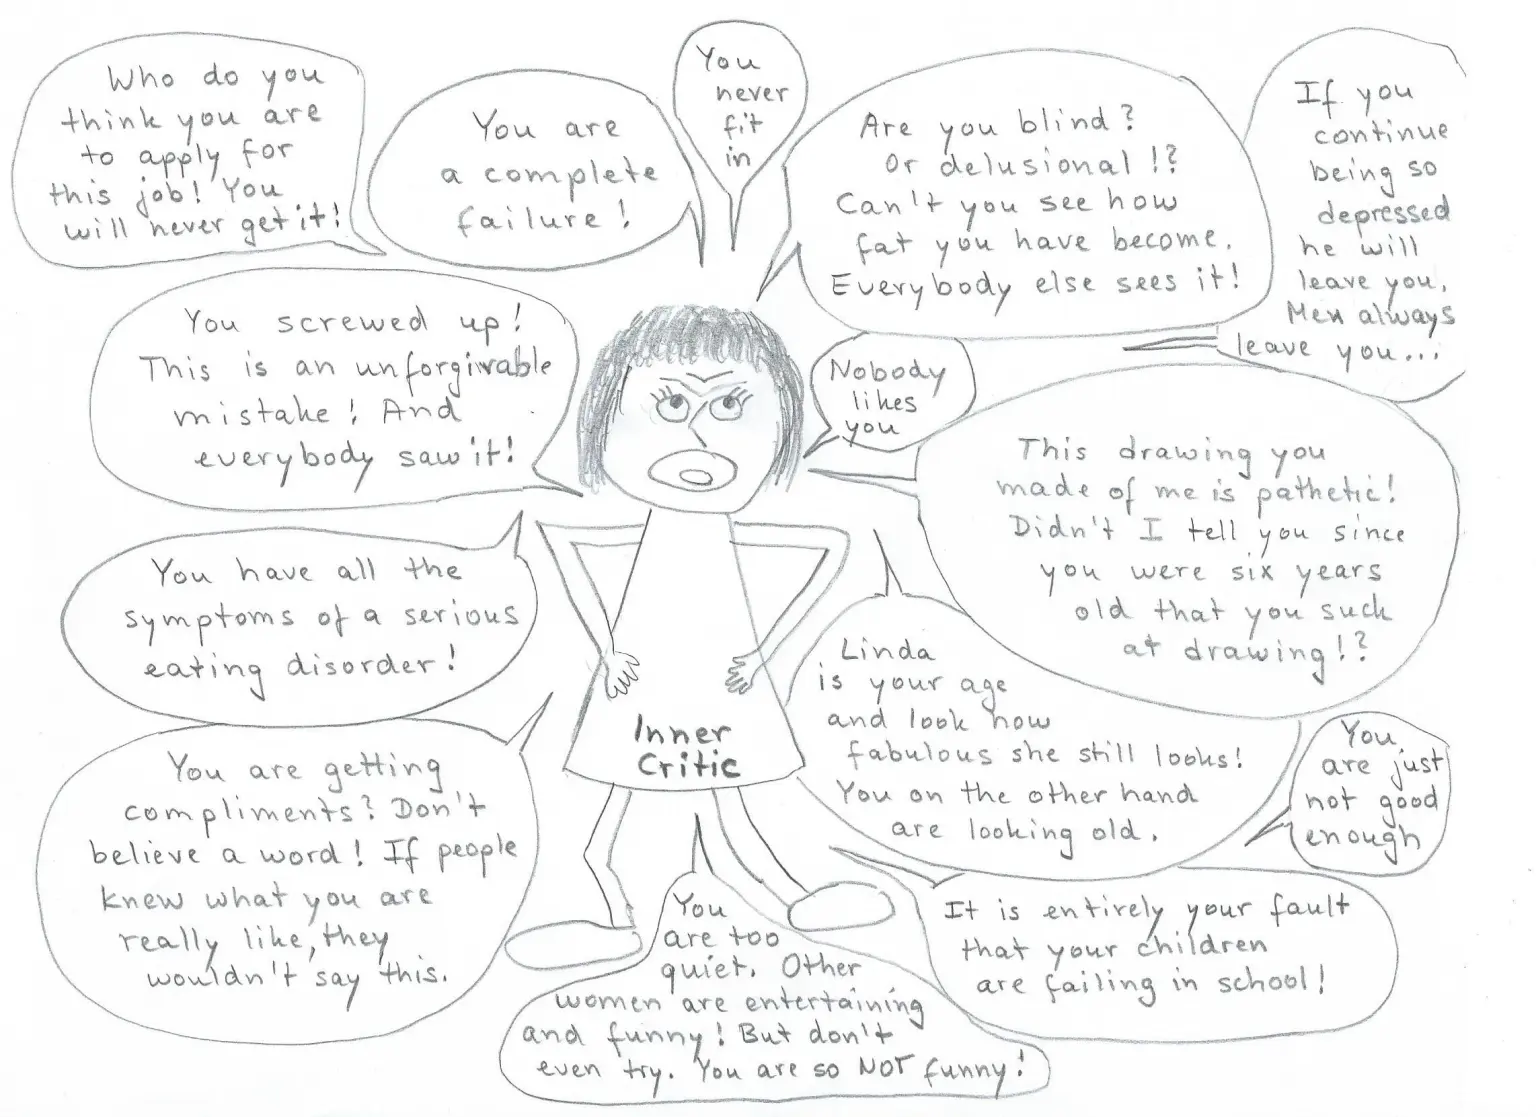 Who do you
think you are
to apply for
this job! You
will never get it!
You are
a complete
failure!
You
never
fit
in
Are you blind?
Or delusional!?
Can't you see how
fat you have become.
Everybody else sees it!
If you
continue
being so
depressed
he will
leave you.
Men always
leave you...
You screwed up!
This is an unforgivable
mistake! And
everybody saw it!
Nobody
likes
you
This drawing you
made of me is pathetic!
Didn't I tell you since
you were six years
old that you suck
at drawing!?
You have all the
symptoms of a serious
eating disorder!
Linda
is your age
and look how
fabulous she still looks!
You on the other hand
are looking old.
Inner
Critic
You
are just
not good
enough
You are getting
compliments? Don't
believe a word! If people
knew what you are
really like, they
wouldn't say this.
You
are too
quiet. Other
women are entertaining
and funny! But don't
even try. You are so NOT funny!
It is entirely your fault
that your children
are failing in school!